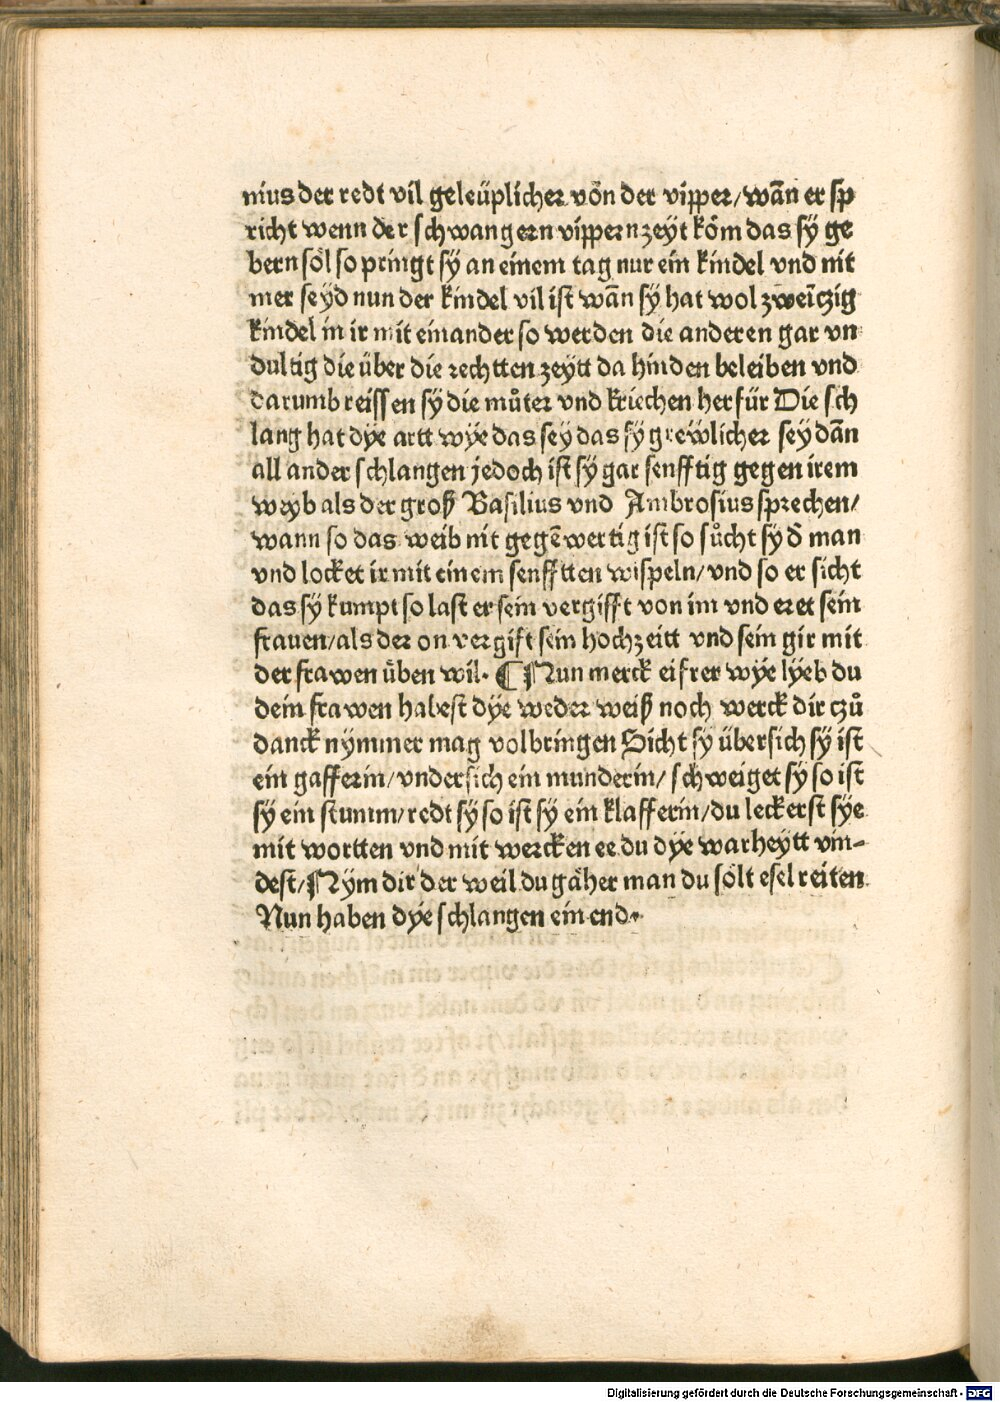 nius der redt vil geleüplicher võn der vipper/wãn er sp
richt wenn der schwangern vippern zeyt köm das sÿ ge
bern söl so pringt sÿ an einem tag nur ein kindel vnd nit
mer seÿd nun der kindel vil ist wãn sÿ hat wol zweĩczig
kindel in ir mit einander so werden die anderen gar vn
dultig die über die rechtten zeytt da hinden beleiben vnd
darumb reissen sÿ die můter vnd kriechen her für Die sch
lang hat dÿe artt wÿe das seÿ das sÿ grewlicher seÿ dãn
all ander schlangen jedoch ist sÿ gar senfftig gegen irem
weyb als der groß Basilius vnd Ambrosius sprechen/
wann so das weib nit gegẽwertig ist so sůcht sÿ d̃ man
vnd locket ir mit einem senfftten wispeln/vnd so er sicht
das sÿ kumpt so last er sein vergifft von im vnd eret sein
frauen/als der on vergift sein hochzeitt vnd sein gir mit
der frawen üben wil. ¶ Nun merck eifrer wÿe lÿeb du
dein frawen habest dÿe weder weiß noch werck dir czů
danck nÿmmer mag volbringen Sicht sÿ übersich sÿ ist
ein gafferin/vndersich ein munderin/ schweiget sÿ so ist
sÿ ein stumm/redt sÿ so ist sÿ ein klafferin/du leckerst sÿe
mit wortten vnd mit wercken ee du dÿe warheÿtt vin-
dest/Nÿm dir der weil du gäher man du sölt esel reiten
Nun haben dÿe schlangen ein end.
Digitalisierung gefördert durch die Deutsche Forschungsgemeinschaft - DFG